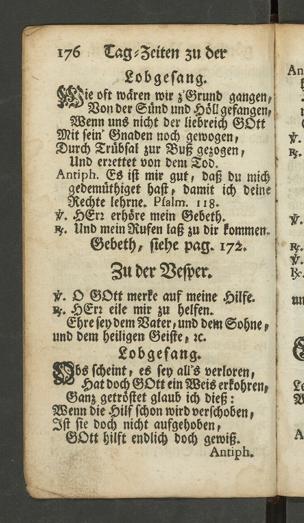 176 Tag-Zeiten zu der
Lobgesang.
Wie oft wären wir z'Grund gangen,
Von der Sünd und Höll gefangen,
Wenn uns nicht der liebreich GOtt
Mit sein' Gnaden noch gewogen,
Durch Trübsal zur Buß gezogen,
Und errettet von dem Tod.
Antiph. Es ist mir gut, daß du mich
gedemüthiget hast, damit ich deine
Rechte lehrne. Psalm. 118.
℣. HErr erhöre mein Gebeth.
℟. Und mein Rufen laß zu dir kommen.
Gebeth, siehe pag. 172.
Zu der Vesper.
℣. O GOtt merke auf meine Hilfe.
℟. HErr eile mir zu helfen.
Ehre sey dem Vater, und dem Sohne,
und dem heiligen Geiste, ꝛc.
Lobgesang.
Obs scheint, es sey all's verloren,
Hat doch GOtt ein Weis erkohren,
Ganz getröstet glaub ich dieß:
Wenn die Hilf schon wird verschoben,
Ist sie doch nicht aufgehoben,
GOtt hilft endlich doch gewiß.
Antiph.